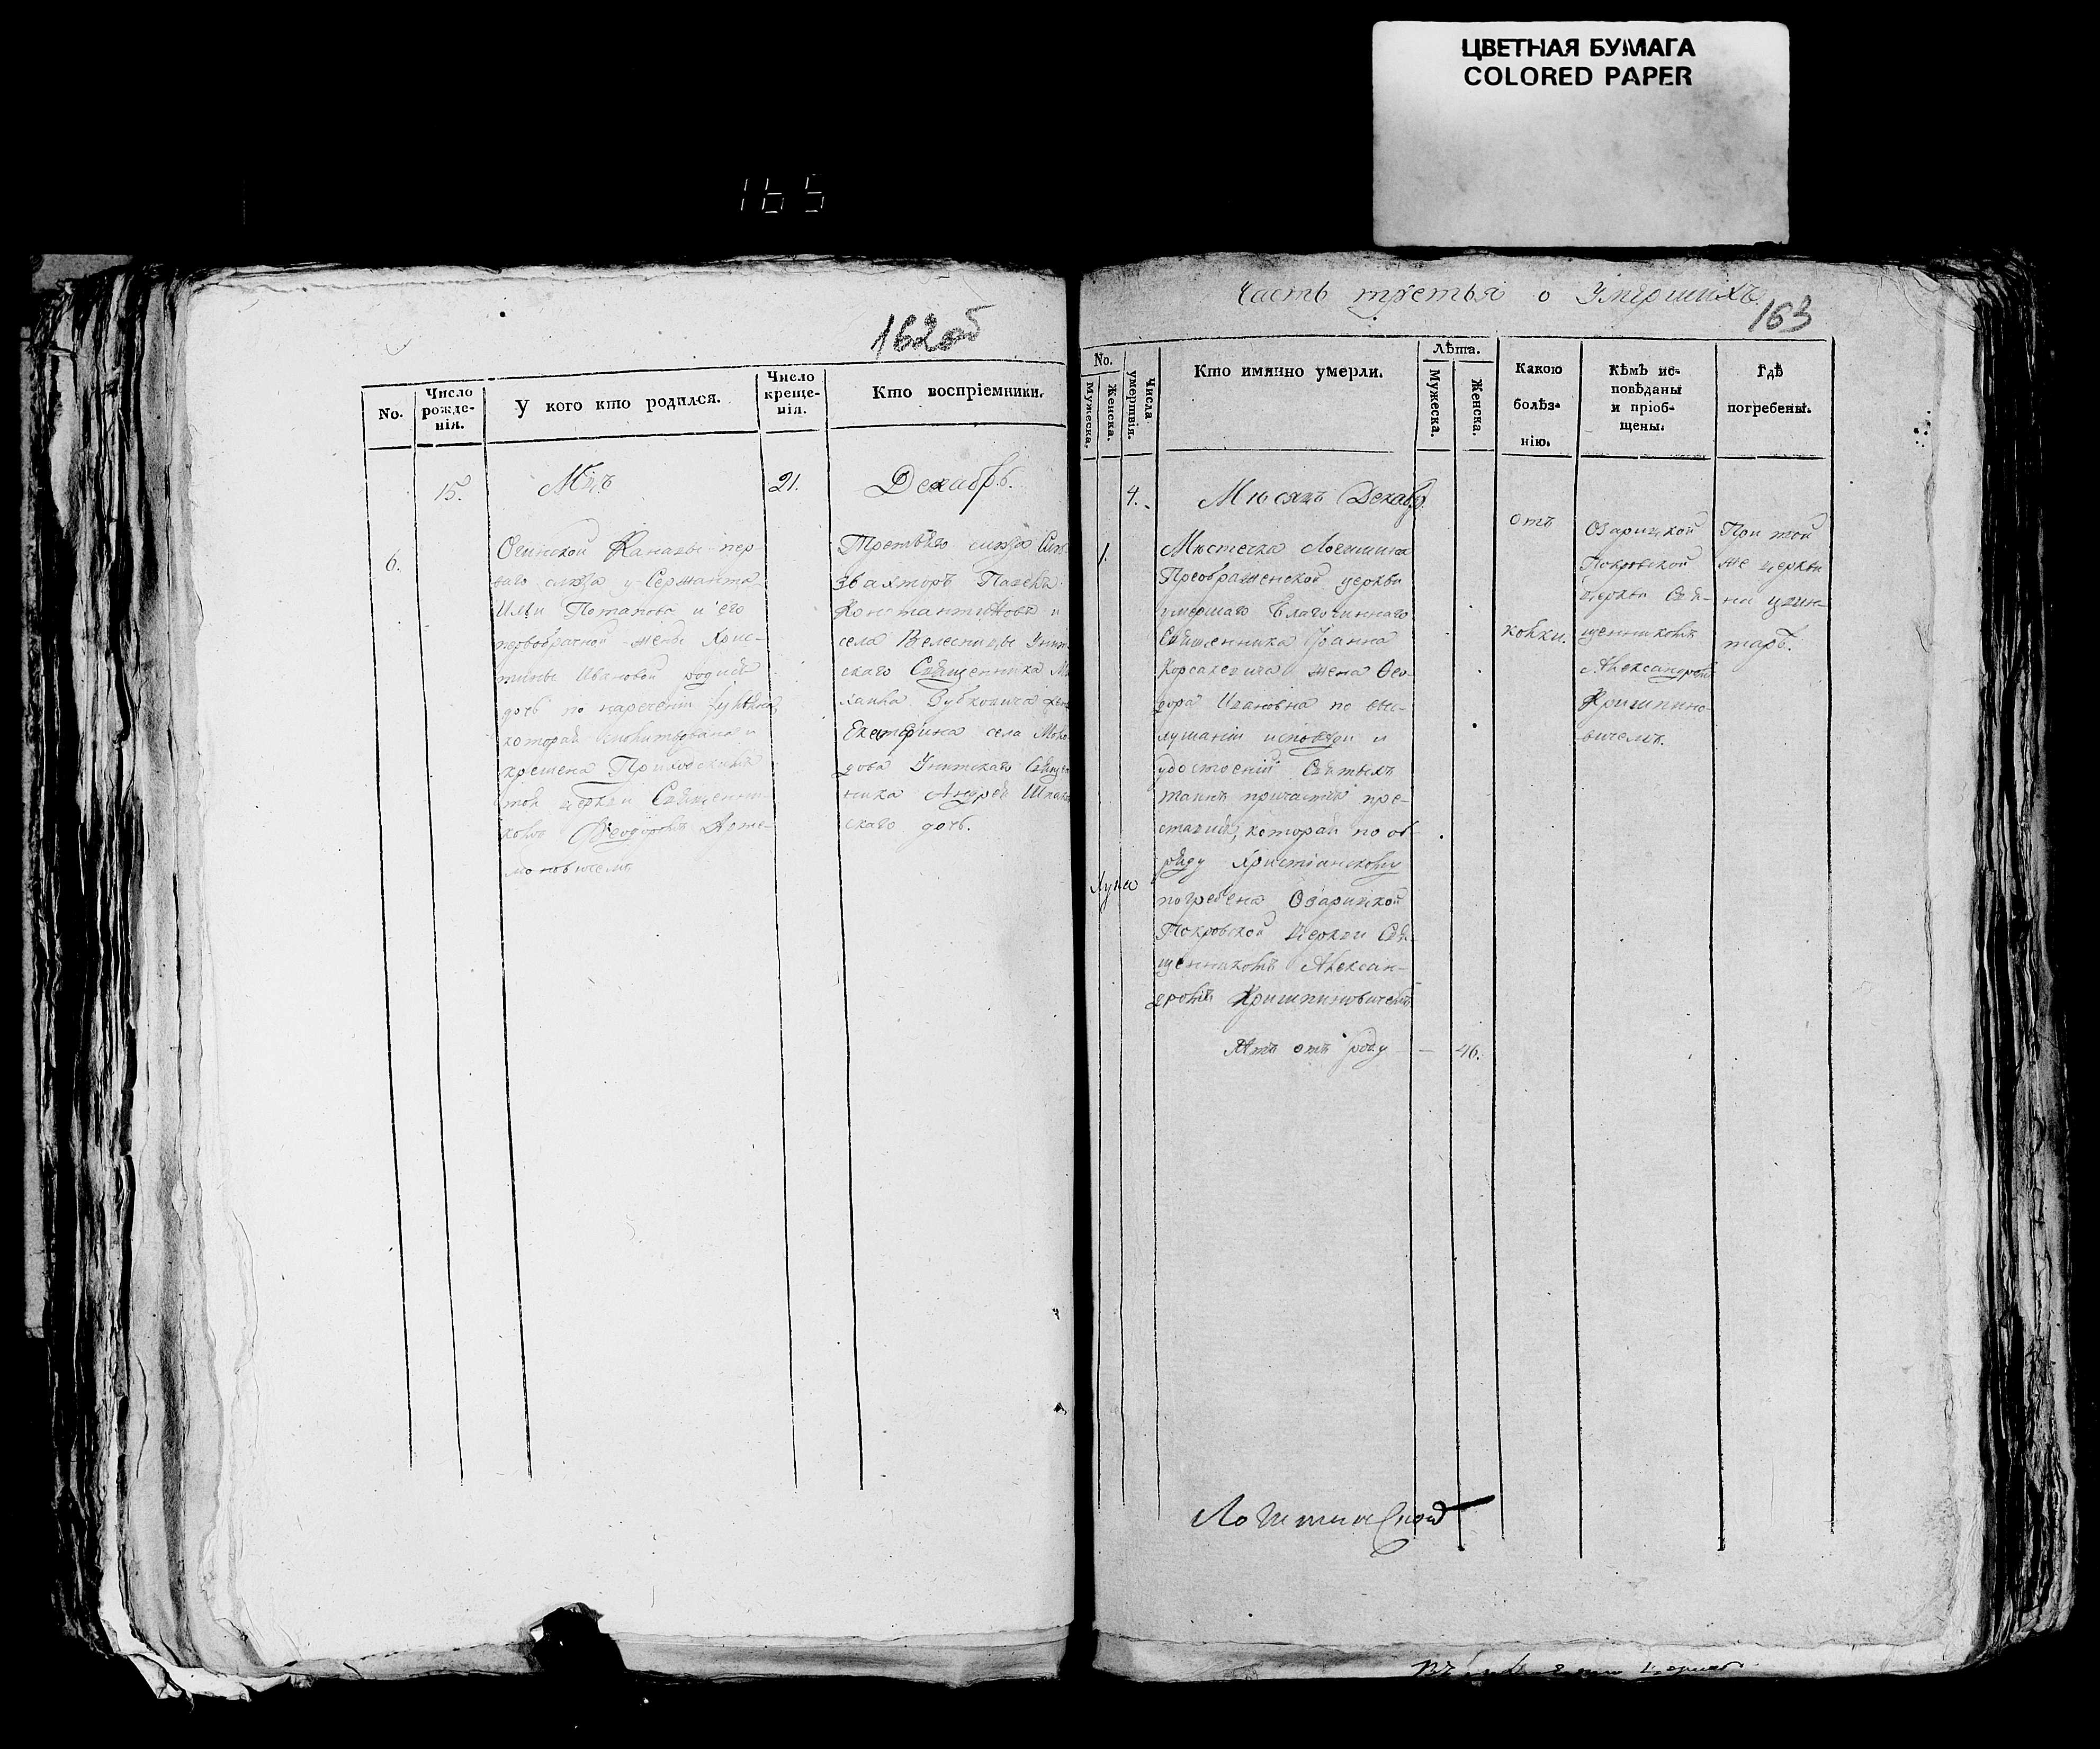 ЦВЕТНАЯ БУМАГА
COLORED PAPER
165
162об
No.
Число рожде-нія.
У кого кто родился.
Число креще-нія.
Кто воспріемники.
15.
Мцъ
21.
Декабрь.
6.
Огинской Каналы пер
ваго слюза у Сержанта
Ильи Потапова и его
первобрачной жены Хрис-
тины Ивановой родись
дочь по наречении
которая молитвована и
крещена
той церкви Священни-
комъ Феодоромъ Арте-
моновичемъ
Третьяго слюза
вахторъ Павелъ
Константиновъ и
села Велесницы Унит
скаго Священника Ми
хаила Зубковича жена
Екатерина села Моко
дова Унитскаго Свяще
ника Андрей Шпако
скаго дочь.
Часть третья о Умершихъ
163
No.
Мужеска.
Женска.
Числа умертвія.
Кто имянно умерли.
Лѣта.
Мужеска.
Женска.
Какою болѣз-нію.
Кѣмъ ис-повѣданы и пріоб-щены.
Гдѣ погребены.
4.
Мѣсяцъ Декабр
1.
Мѣстечка Логишина
Преображенской церкви
умершаго Благочиннаго
Священника Іоанна
Корсакевича жена Фео-
дора Ивановна по выс-
лушаніи исповѣди и
удостоеніи Святыхъ
таинъ причастія пре-
ставись, которая по об-
ряду Христіанскому
погребена Озарицкой
Покровской Церкви Свя-
щенникомъ Алексан-
дромъ Кришпиновичемъ
Лѣтъ отъ роду — 46.
отъ
Озарицкой
Покровской
Церкви Свя-
щенникомъ
Александромъ
Кришпино-
вичемъ.
При той
же церкви
на цвин-
таръ.